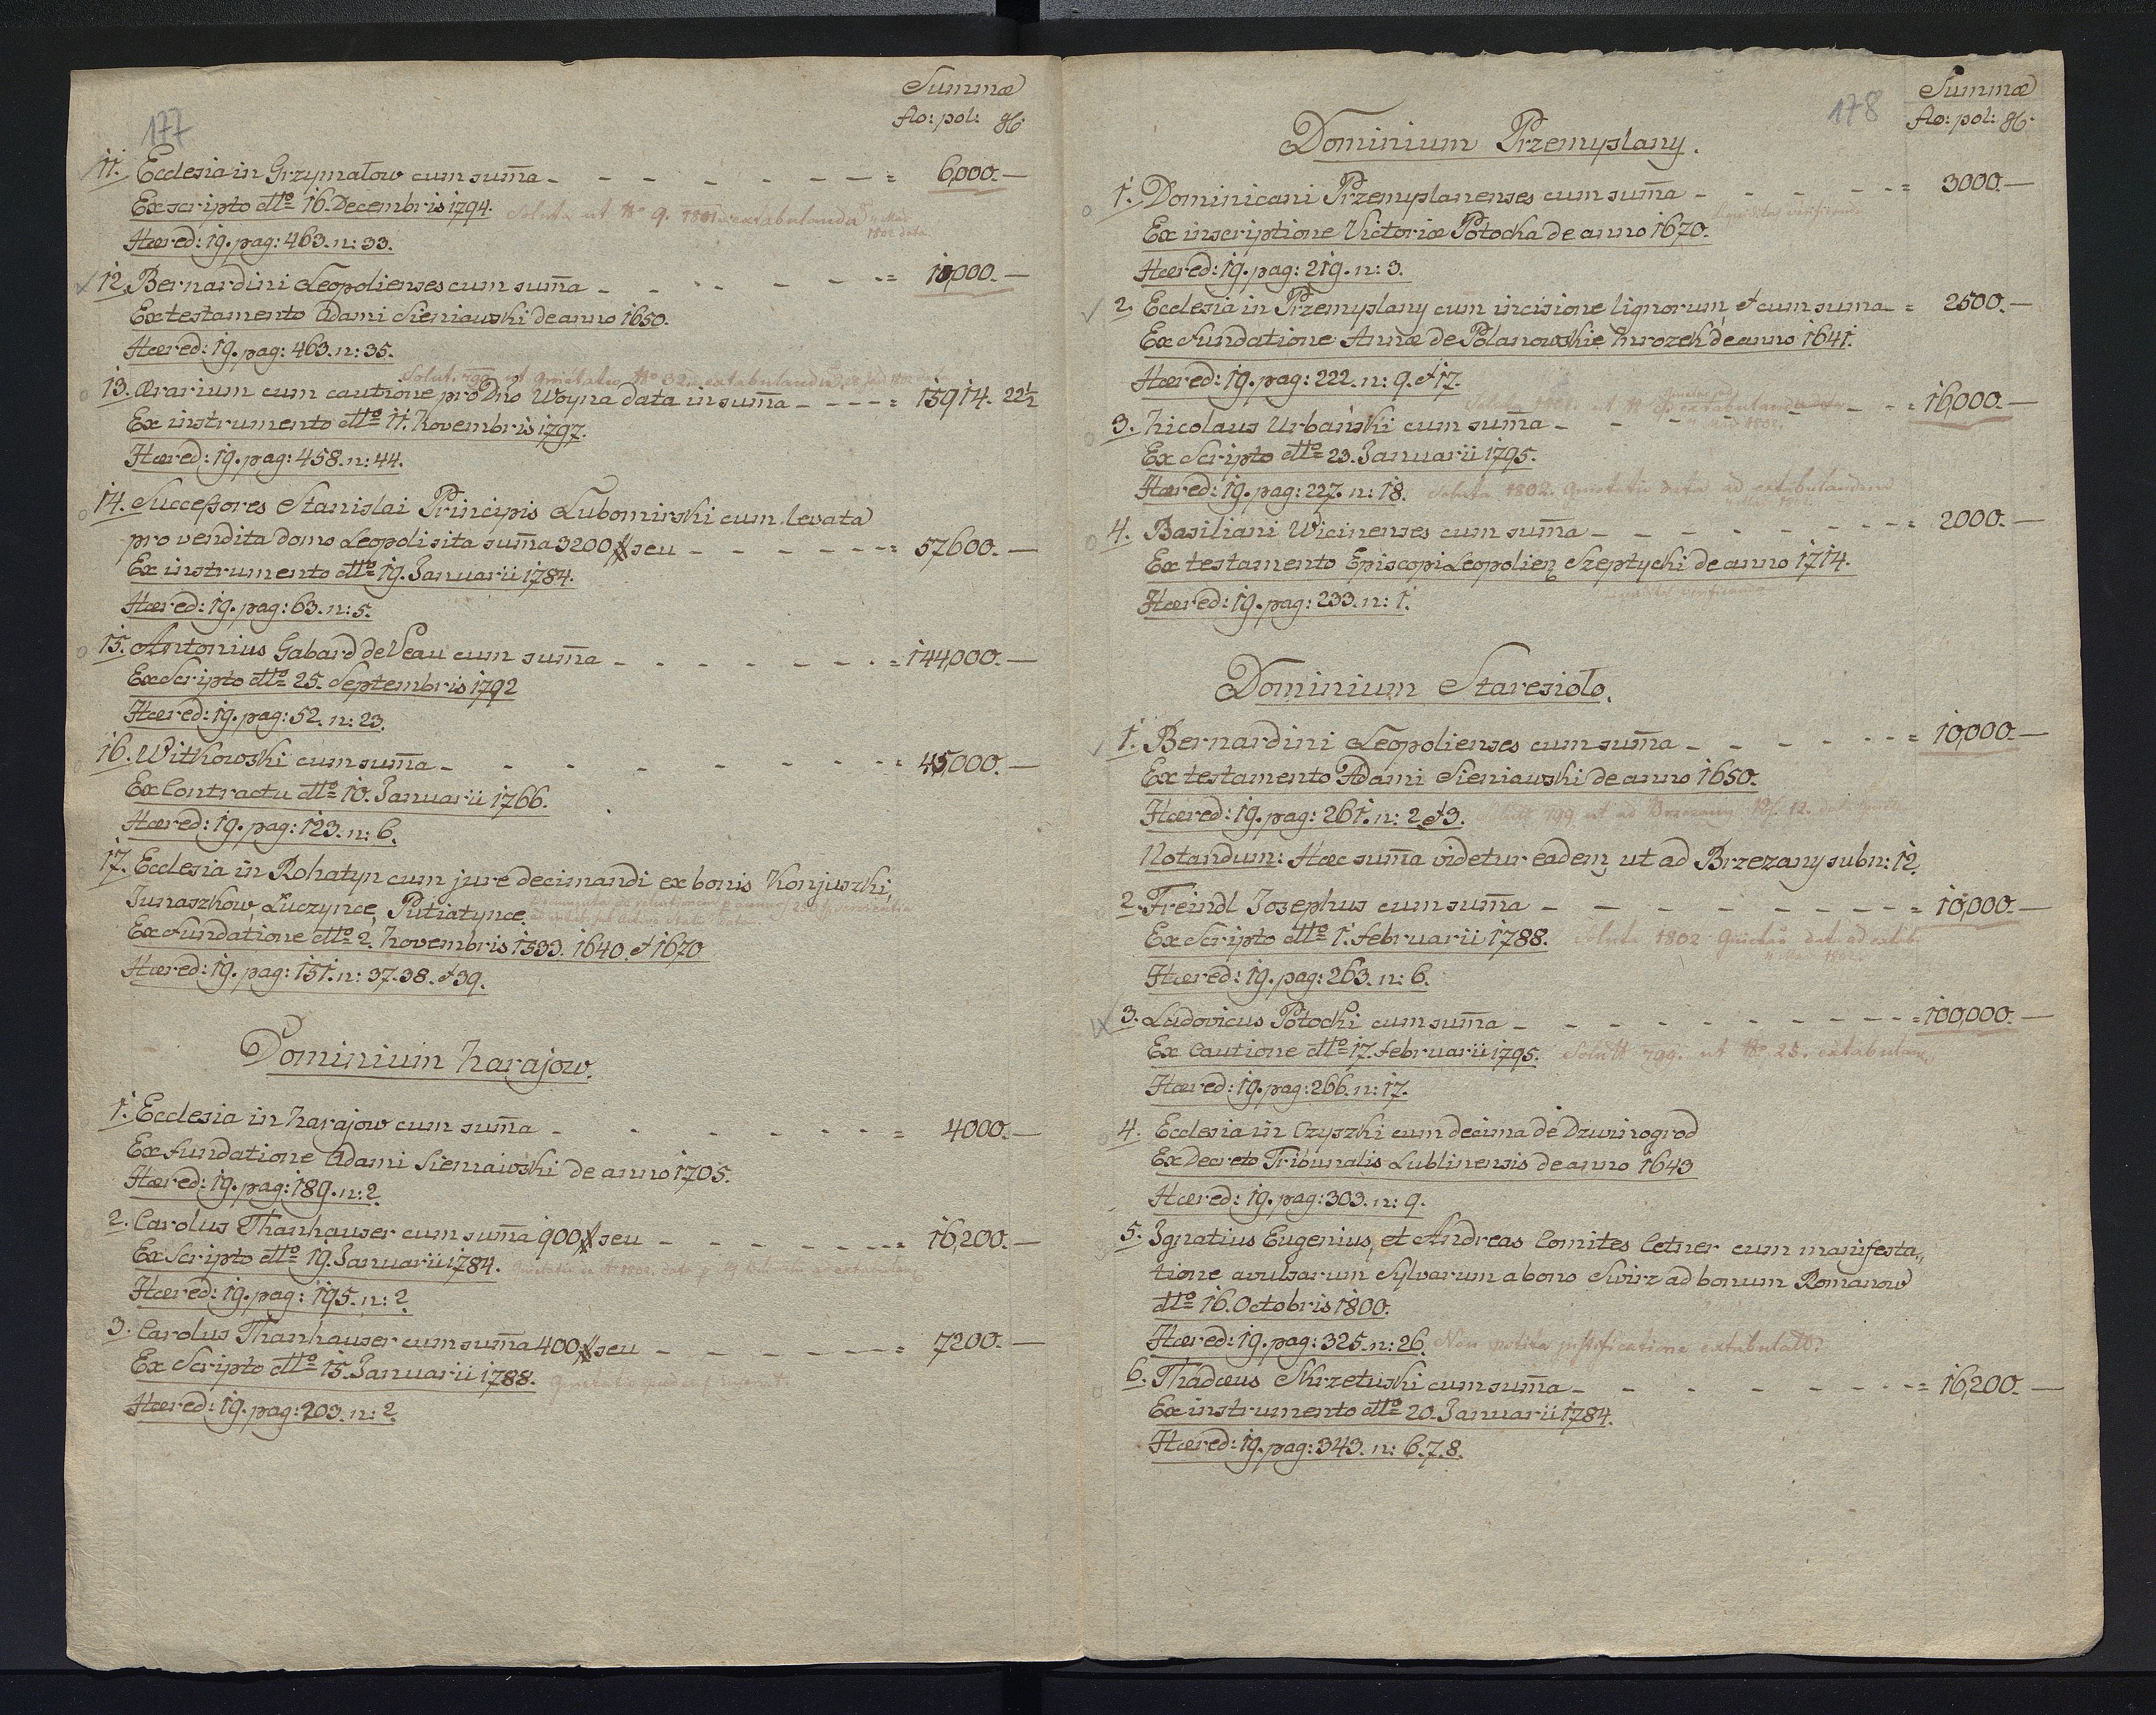 177
Summæ
flo: pol: gr:
11. Ecclesia in Grzymałow cum sum̄a - - - - - - - - = 6,000. —
Ex scripto dtto 16. Decembris 1794. Soluta ut No 9. 1801 extabulanda
1802 data
Hæred: 19. pag: 463. n: 33.
12. Bernardini Leopolienses cum sum̄a - - - - - - - = 10,000. —
Ex testamento Adami Sieniawski de anno 1650.
Hæred: 19. pag: 463. n: 35.
Solut. 799 ut Quietatio No 32. extabulanda
13. Ærarium cum cautione pro Dno Woyna data in sum̄a - - - - = 15914. 22½
Ex instrumento dtto 11. Novembris 1797.
Hæred: 19. pag: 458. n: 44.
14. Successores Stanislai Principis Lubomirski cum levata
pro vendita domo Leopoli sita sum̄a 3200 # seu - - - - - - = 57600. —
Ex instrumento dtto 19. Januarii 1784.
Hæred: 19. pag: 63. n: 5.
15. Antonius Gabard de Veau cum sum̄a - - - - - - - = 144,000. —
Ex Scripto dtto 25. Septembris 1792
Hæred: 19. pag: 52. n: 23.
16. Witkowski cum sum̄a - - - - - - - - - = 45,000. —
Ex Contractu dtto 10. Januarii 1766.
Hæred: 19. pag: 123. n: 6.
17. Ecclesia in Rohatyn cum jure decimandi ex bonis Konjuszki,
Junaszkow, Łuczynce, Putiatynce.
Ex fundatione dtto 2. Novembris 1533. 1640. et 1670
Hæred: 19. pag: 151. n: 37. 38. et 39.
Dominium Narajow.
1. Ecclesia in Narajow cum sum̄a - - - - - - - = 4000. —
Ex fundatione Adami Sieniawski de anno 1705.
Hæred: 19. pag: 189. n: 2.
2. Carolus Thanhauser cum sum̄a 900 # seu - - - - - - = 16,200. —
Ex Scripto dtto 19. Januarii 1784.
Hæred: 19. pag: 195. n: 2
3. Carolus Thanhauser cum sum̄a 400 # seu - - - - - - = 7200. —
Ex Scripto dtto 15. Januarii 1788.
Hæred: 19. pag: 203. n: 2.
178
Summæ
flo: pol: gr:
Dominium Przemyslany.
1. Dominicani Przemyslanenses cum sum̄a - - - - - = 3000. —
Ex inscriptione Victoriæ Potocka de anno 1670.
Hæred: 19. pag: 219. n: 3.
2. Ecclesia in Przemyslany cum incisione lignorum, et cum suma - = 2500. —
Ex fundatione Annæ de Polanowskie Mrozek de anno 1641.
Hæred: 19. pag: 222. n: 9. et 17.
3. Nicolaus Urbański cum sum̄a - - - - - - = 16,000. —
Ex Scripto dtto 23. Januarii 1795.
Hæred: 19. pag: 227. n: 18. Soluta 1802. Quietatio data ad extabulandum
4. Basiliani Wicinenses cum sum̄a - - - - - - - = 2000. —
Ex testamento Episcopi Leopolien Szeptycki de anno 1714.
Hæred: 19. pag: 233. n: 1.
Dominium Staresioło.
1. Bernardini Leopolienses cum sum̄a - - - - - - = 10,000. —
Ex testamento Adami Sieniawski de anno 1650.
Hæred: 19. pag: 261. n: 2 et 3. Solutt 799 ut ad Brzezany No. 12.
Notandum: Hæc sum̄a videtur eadem ut ad Brzezany sub n: 12.
2. Freindl Josephus cum sum̄a - - - - - - - - = 10,000. —
Ex Scripto dtto 1. februarii 1788. Soluta 1802 Quietatio data ad extab:
Hæred: 19. pag: 263. n: 6.
3. Ludovicus Potocki cum sum̄a - - - - - - - - - = 100,000. —
Ex Cautione dtto 17. februarii 1795. Solutt 799. ut No 25. extabuland
Hæred: 19. pag: 266. n: 17.
4. Ecclesia in Czyszki cum decima de Dzwinogrod
Ex Decreto Tribunalis Lublinensis de anno 1643
Hæred: 19. pag: 303. n: 9.
5. Ignatius Eugenius, et Andreas Comites Cetner cum manifesta„
tione avulsarum Sylvarum a bono Swirz ad bonum Romanow
dtto 16. Octobris 1800.
Hæred: 19. pag: 325. n: 26. Non justificatione
6. Thadæus Skrzetuski cum sum̄a - - - - - - - = 16,200. —
Ex instrumento dtto 20. Januarii 1784.
Hæred: 19. pag: 343. n: 6. 7. 8.